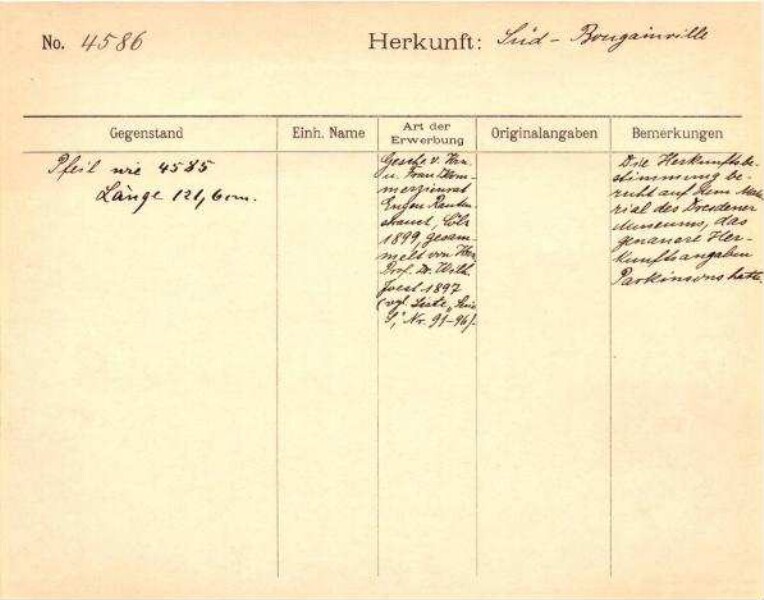 No. 4586
Herkunft: Süd - Bougainville
Gegenstand
Einh. Name
Art der Erwerbung
Originalangaben
Bemerkungen
Pfeil wie 4585
Länge 121,6 cm.
Geschk v. Hrn.
u. Frau Kom-
merzienrat
Eugen Rauten-
strauch, Cöln
1899, gesam-
melt von Herrn
Prof. Dr. Wilh.
Joest 1897
(vgl. Liste
S," Nr. 91-96).
Die Herkunftsbe-
stimmung be-
ruht auf dem Mate-
rial des Dresdener
Museums, das
genauere Her-
kunftsangaben
Parkinsons hatte.